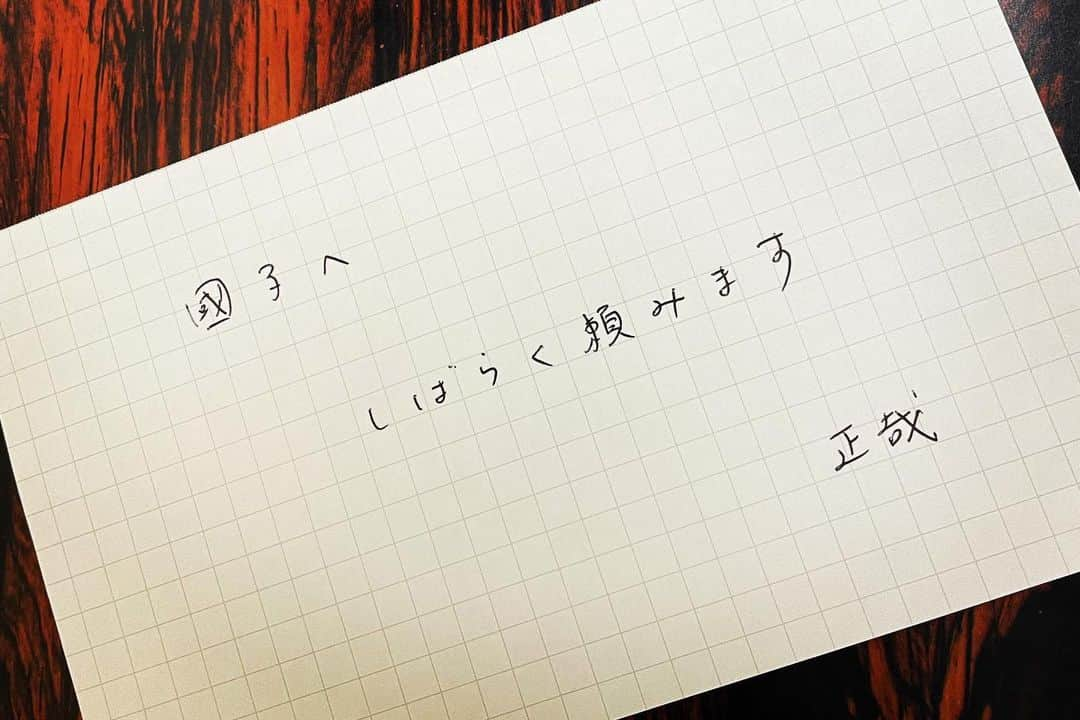 國子へ
しばらく頼みます
正哉